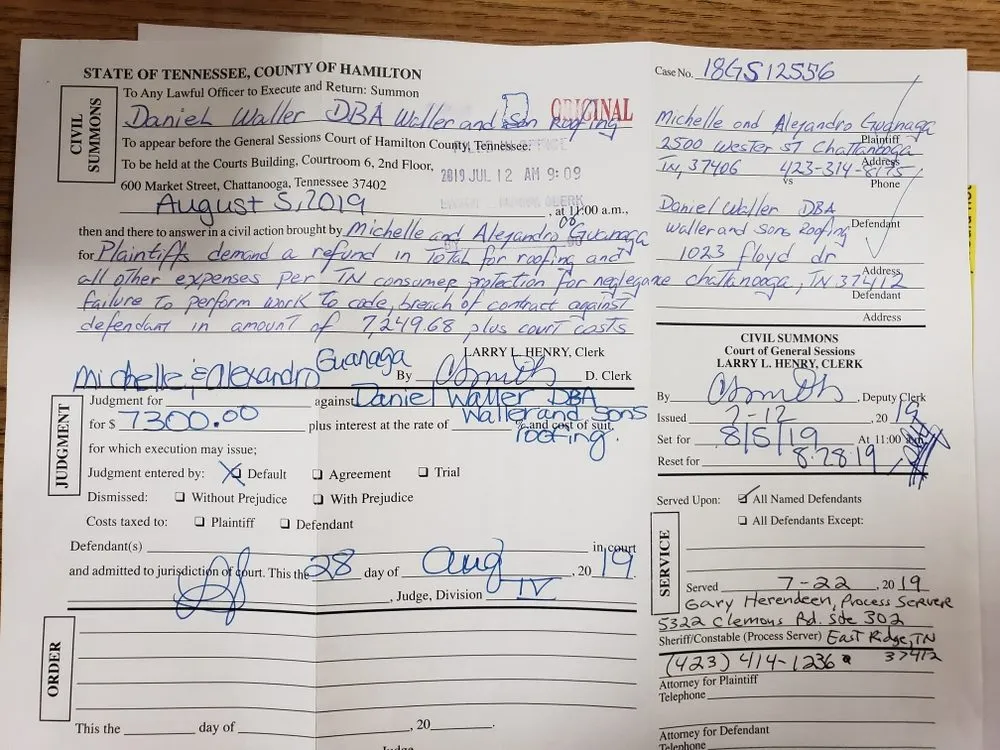 STATE OF TENNESSEE, COUNTY OF HAMILTON
CIVIL SUMMONS
To Any Lawful Officer to Execute and Return: Summon
ORIGINAL
Daniel Waller DBA Waller and Son Roofing
To appear before the General Sessions Court of Hamilton County, Tennessee.
To be held at the Courts Building, Courtroom 6, 2nd Floor,
600 Market Street, Chattanooga, Tennessee 37402
2019 JUL 12 AM 9:09
August 5, 2019, at 11:00 a.m.,
then and there to answer in a civil action brought by Michelle and Alejandro Guanaga
for Plaintiffs demand a refund in total for roofing and
all other expenses per TN consumer protection for neglegance
failure to perform work to code, breach of contract against
defendant in amount of 7,249.68 plus court costs
LARRY L. HENRY, Clerk
By D. Clerk
JUDGMENT
Michelle & Alexandro Guanaga
Judgment for against Daniel Waller DBA
Waller and Sons
roofing.
for $ 7300.00 plus interest at the rate of % and cost of suit,
for which execution may issue;
Judgment entered by: ☒ Default ❑ Agreement ❑ Trial
Dismissed: ❑ Without Prejudice ❑ With Prejudice
Costs taxed to: ❑ Plaintiff ❑ Defendant
Defendant(s) in court
and admitted to jurisdiction of court. This the 28 day of Aug, 2019
, Judge, Division IV
ORDER
This the day of , 20 .
Judge
Case No. 18GS12556
Michelle and Alejandro Guanaga
Plaintiff
2500 Wester ST Chattanooga
Address
TN, 37406 423-314-8175
vs Phone
Daniel Waller DBA
Waller and Sons Roofing
Defendant
1023 floyd dr
Address
chattanooga, TN 37412
Defendant
Address
CIVIL SUMMONS
Court of General Sessions
LARRY L. HENRY, CLERK
By , Deputy Clerk
Issued 7-12, 2019
Set for 8/5/19 At 11:00 a.m.
Reset for 8.28.19
SERVICE
Served Upon: ☑ All Named Defendants
❑ All Defendants Except:
Served 7-22, 2019
Gary Herendeen, Process Server
5322 Clemons Rd. Ste 302
Sheriff/Constable (Process Server) East Ridge, TN
(423) 414-1236 37412
Attorney for Plaintiff
Telephone
Attorney for Defendant
Telephone